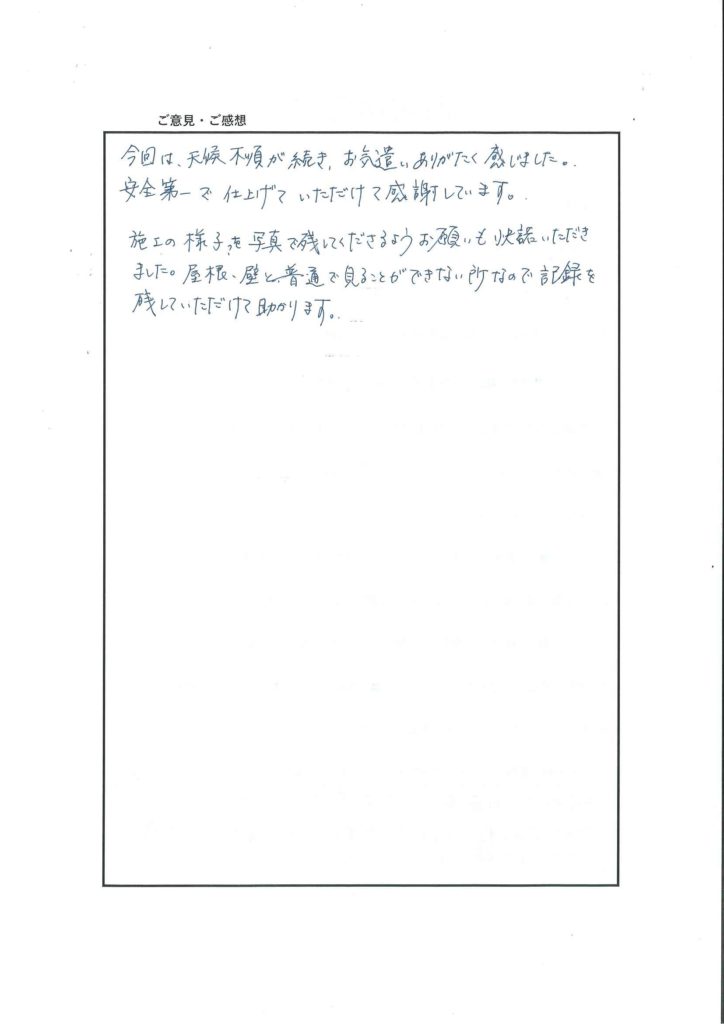 ご意見・ご感想
今回は、天候不順が続き、お気遣いありがたく感じました。
安全第一で仕上げていただけて感謝しています。
施工の様子を写真で残してくださるようお願いも快諾いただき
ました。屋根、壁と、普通で見ることができない所なので記録を
残していただけて助かります。